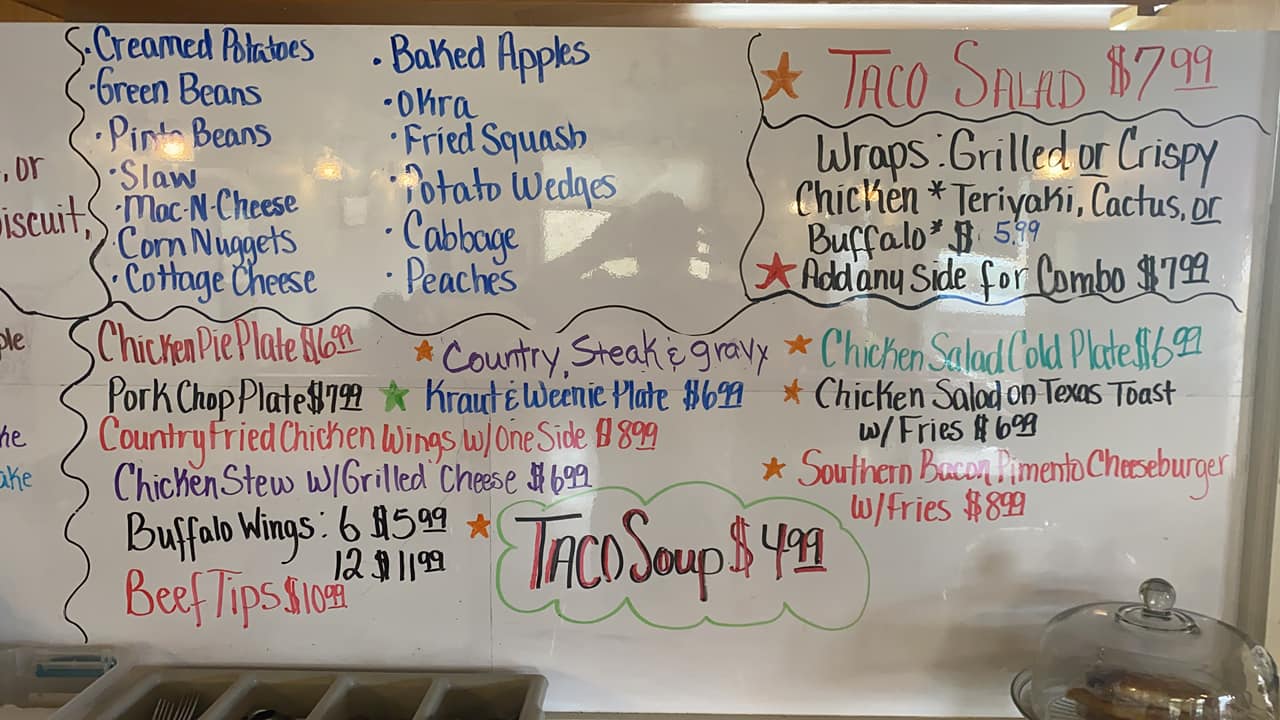 , or
iscuit,
ple
ke
ake
• Creamed Potatoes
• Green Beans
• Pinto Beans
• Slaw
• Mac-N-Cheese
• Corn Nuggets
• Cottage Cheese
• Baked Apples
• Okra
• Fried Squash
• Potato Wedges
• Cabbage
• Peaches
Taco Salad $7.99
Wraps: Grilled or Crispy
Chicken * Teriyaki, Cactus, or
Buffalo * $ 5.99
Add any Side for Combo $7.99
Chicken Pie Plate $6.99
Pork Chop Plate $7.99
Country Fried Chicken Wings w/ One Side $8.99
Chicken Stew w/ Grilled Cheese $6.99
Buffalo Wings: 6 $5.99
12 $11.99
Beef Tips $10.99
Country Steak & gravy
Kraut & Weenie Plate $6.99
Taco Soup $4.99
Chicken Salad Cold Plate $6.99
Chicken Salad on Texas Toast
w/ Fries $6.99
Southern Bacon Pimento Cheeseburger
w/ Fries $8.99